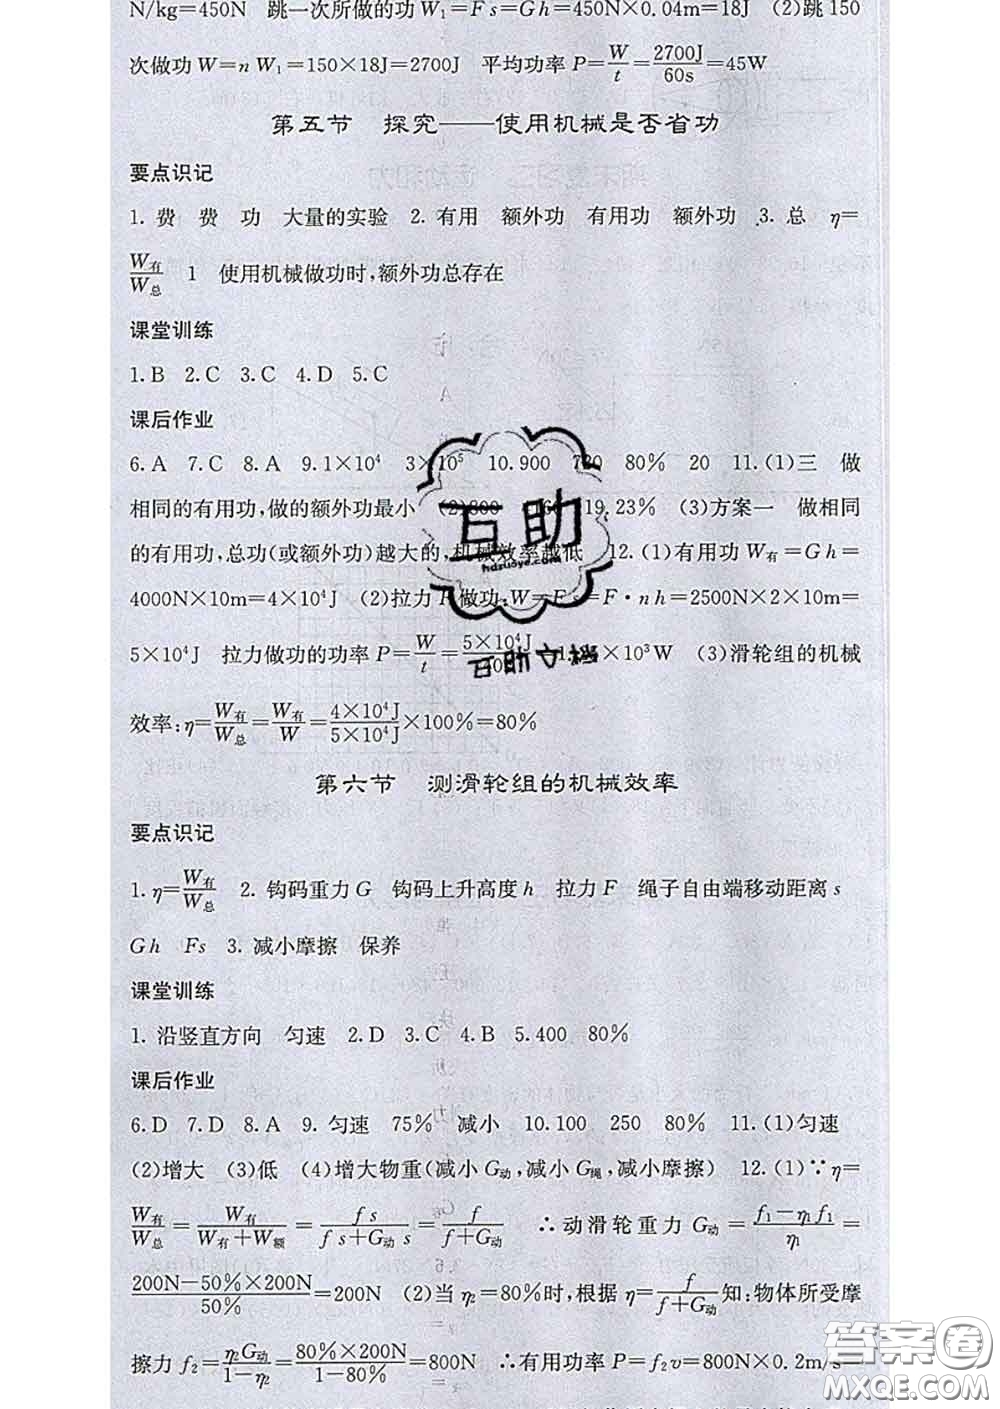 N/kg=450N 跳一次所做的功 W₁=Fs=Gh=450N×0.04m=18J (2)跳150
次做功 W=nW₁=150×18J=2700J 平均功率 P=W/t=2700J/60s=45W
第五节 探究——使用机械是否省功
要点识记
1. 费 费 功 大量的实验 2. 有用 额外功 有用功 额外功 3. 总 η=
W有/W总 1 使用机械做功时,额外功总存在
课堂训练
1.B 2.C 3.C 4.D 5.C
课后作业
6.A 7.C 8.A 9.1×10⁴ 3×10⁵ 10.900 720 80% 20 11.(1)三 做
相同的有用功,做的额外功最小 (2)800 19.23% (3)方案一 做相同
的有用功,总功(或额外功)越大的,机械效率越低 12.(1)有用功 W有=Gh=
4000N×10m=4×10⁴J (2)拉力 F 做功:W=Fs=F·nh=2500N×2×10m=
5×10⁴J 拉力做功的功率 P=W/t=5×10⁴J/ ×10³W (3)滑轮组的机械
效率:η=W有/W总=W有/W=4×10⁴J/5×10⁴J×100%=80%
第六节 测滑轮组的机械效率
要点识记
1. η=W有/W总 2. 钩码重力 G 钩码上升高度 h 拉力 F 绳子自由端移动距离 s
Gh Fs 3. 减小摩擦 保养
课堂训练
1. 沿竖直方向 匀速 2.D 3.C 4.B 5.400 80%
课后作业
6.D 7.D 8.A 9. 匀速 75% 减小 10.100 250 80% 11.(1)匀速
(2)增大 (3)低 (4)增大物重(减小 G动,减小 G绳,减小摩擦) 12.(1)∵η=
W有/W总=W有/(W有+W额)=fs/(fs+G动s)=f/(f+G动) ∴动滑轮重力 G动=(f₁-η₁f₁)/η₁=
(200N-50%×200N)/50%=200N (2)当 η₂=80%时,根据 η=f/(f+G动)知:物体所受摩
擦力 f₂=η₂G动/(1-η₂)=80%×200N/(1-80%)=800N ∴有用功率 P=f₂v=800N×0.2m/s=
互助
hdzuoye.com
互助文档
答案圈
MXQE.COM